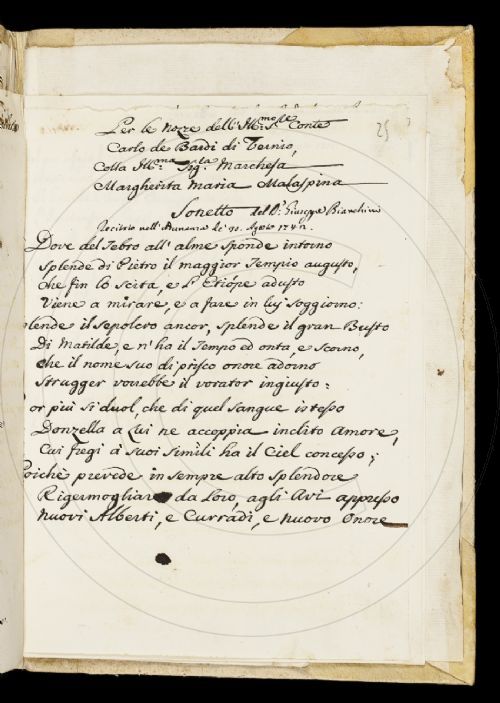 25
Per le Nozze dell' Illmo Sr Conte
Carlo de Bardi di Vernio,
Colla Illma Sigla Marchesa
Margherita Maria Malaspina
Sonetto del Dr Giuseppe Bianchini
Recitato nell' Adunanza li 30. Agosto
Dove del Tebro all' alme sponde intorno
Splende di Pietro il maggior Tempio augusto,
che fin lo Scita, e l' Etiópe adusto
Viene a mirare, e a fare in lui soggiorno:
lende il Sepolcro ancor, splende il gran Busto
Di Matilde, e n' ha il Tempo ed onta, e Scorno,
che il nome suo di prisco onore adorno
Strugger vorrebbe il vorator ingiusto:
or più si duol, che di quel sangue istesso
Donzella a Lui ne accoppia inclito Amore,
Cui fregi a' suoi Simili ha il Ciel concesso;
Poichè prevede in sempre alto splendore
Rigermogliare da Loro, agli Avi appresso
Nuovi Alberti, e Curradi, e nuovo Onore